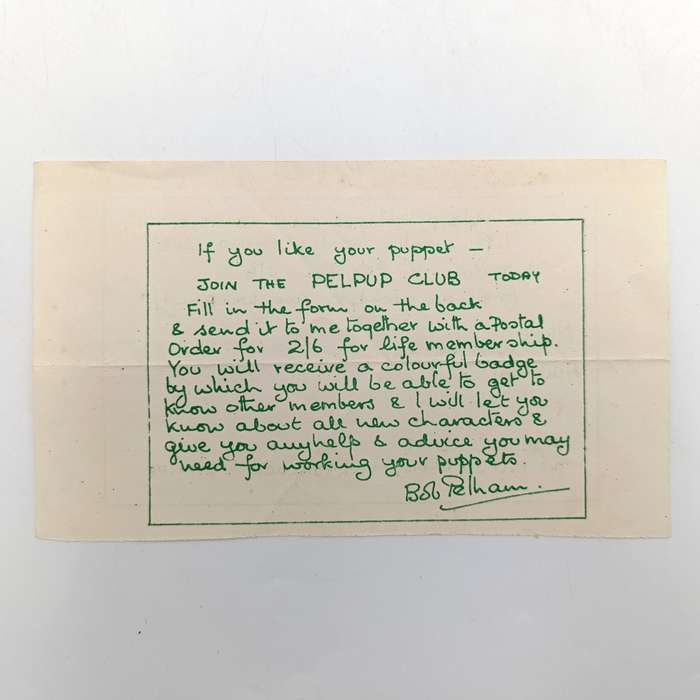 If you like your puppet —
JOIN THE PELPUP CLUB TODAY
Fill in the form on the back
& send it to me together with a Postal
Order for 2/6 for life membership.
You will receive a colourful badge
by which you will be able to get to
know other members & I will let you
know about all new characters &
give you any help & advice you may
need for working your puppets.
Bob Pelham.